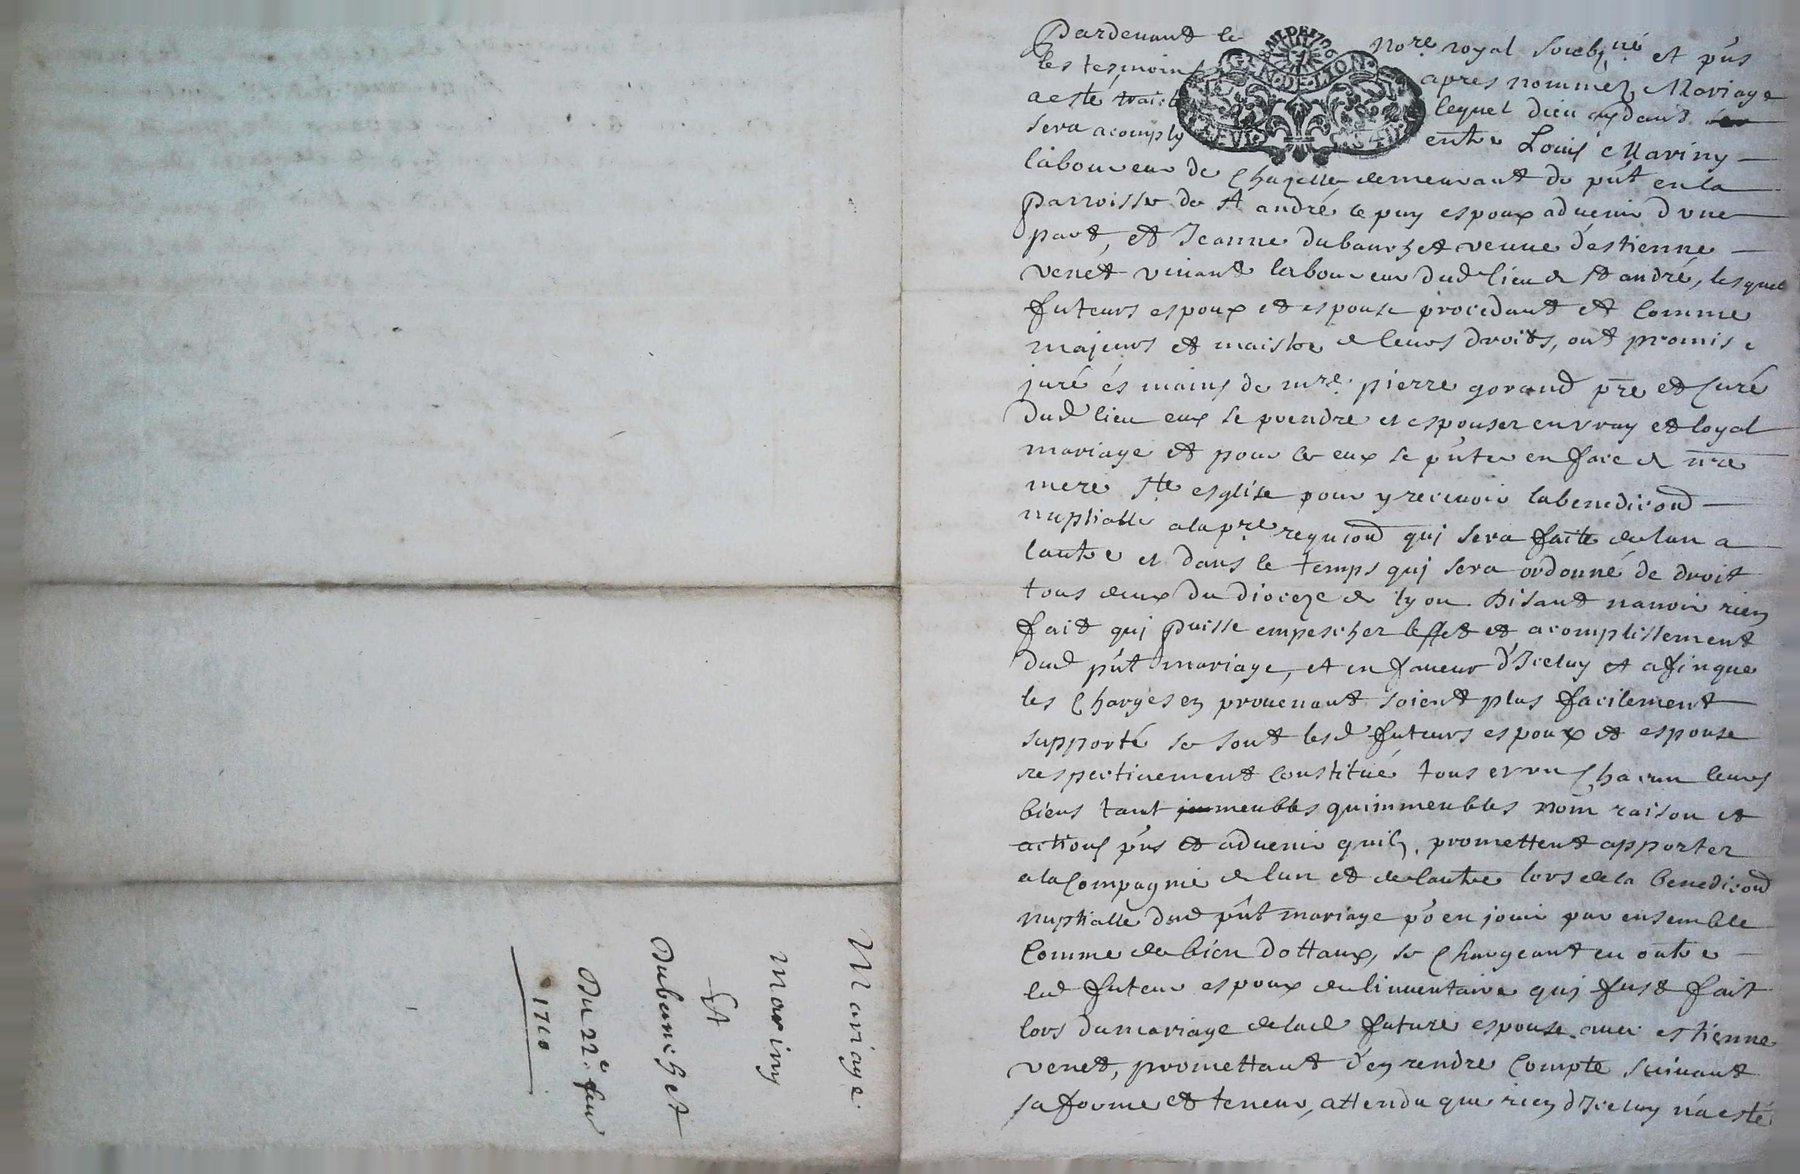 Mariage
Mariny
Et
Dubanchet
Du 22e feur
1710
GEN. DE LION
Pardevant le nore royal soubsné et pñs
les tesmoins apres nommez, Mariage
a esté traité lequel dieu aydant
sera acomply entre Louis Mariny
laboureur de Chazelle demeurant de pñt en la
parroisse de St andré le puy espoux advenir d'une
part, et Jeanne dubanchet veuve d'estienne
venet vivant laboureur dud lieu de st andré, lesquel
futeurs espoux et espouse procedant et comme
majeurs et maistre de leurs droits, ont promis e
juré és mains de mre. pierre gorand pre et curé
dud lieu eux se prendre et espouser en vray et loyal
mariage et pour ce eux se pñter en face de nre
mere Ste esglise pour y recevoir la benediĉon
nuptialle a la pre requiĉon qui sera faite de lun a
lautre et dans le temps qui sera ordonné de droit
tous deux du dioceze de lyon disant n'avoir rien
fait qui puisse empescher leffet et acomplissement
dud pñt mariage, et en faveur d'Iceluy et afin que
les charges en provenant soient plus facilement
supporté se sont lesd futeurs espoux et espouse
respectivement constitué tous et un chacun leurs
biens tant im meubles qu'immeubles nom raison et
actions pñs et advenir quils promettent apporter
a la compagnie de lun et de lautre lors de la benediĉon
nuptialle dud pñt mariage po en jouir par ensemble
comme de bien dottaux, se chargeant en outre
led futeur espoux de linventaire qui fust fait
lors du mariage de lad future espouse avec estienne
venet, promettant d'en rendre compte suivant
sa forme et teneur, attendu que rien d'Iceluy n'a esté